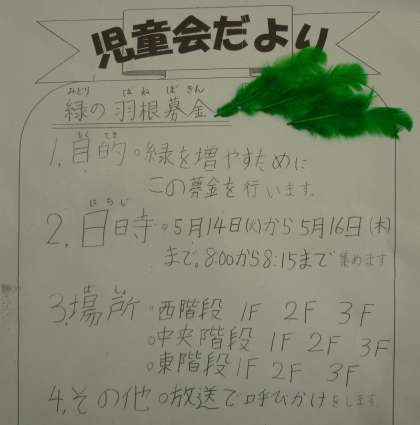 児童会だより
みどり はね ぼきん
緑の羽根募金
もくてき
1.目的 緑を増やすために
この募金を行います。
にちじ
2.日時 5月14日(火)から5月16日(木)
まで。8:00から8:15まで集めます
ばしょ
3.場所 西階段 1F 2F 3F
中央階段 1F 2F 3F
東階段 1F 2F 3F
4.その他 放送で呼びかけをします。